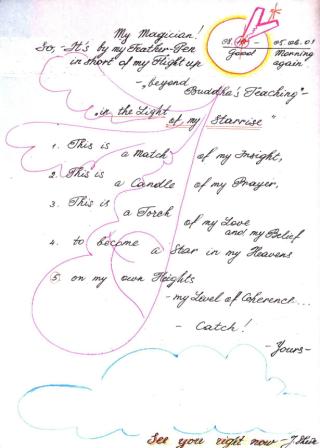 My Magician!
So, - It's by my Feather-Pen
in short of my Flight up
"beyond
Buddha's Teaching" -
"in the Light
of my Starrise"
05.06.01
Good Morning
again!
1. This is
a Match of my Insight,
2. This is
a Candle of my Prayer,
3. This is
a Torch of my Love
and my Belief
4. to become a Star in my Heavens
5. on my own Heights
- my Level of Coherence...
- Catch!
- Yours -
See you right now -